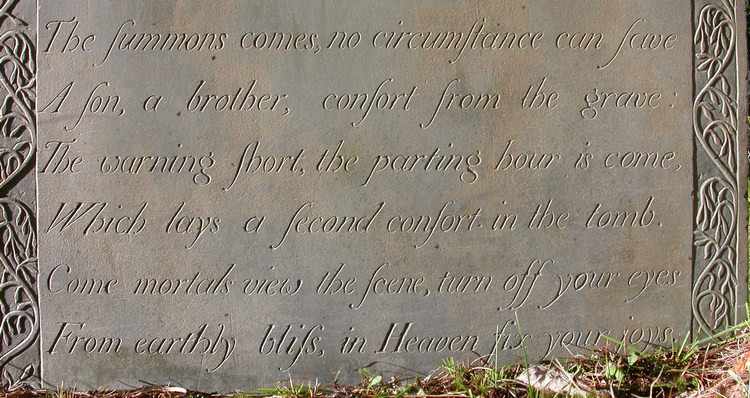 The ſummons comes, no circumſtance can ſave
A ſon, a brother, conſort from the grave:
The warning ſhort, the parting hour is come,
Which lays a ſecond conſort in the tomb.
Come mortals view the ſcene, turn off your eyes
From earthly bliſs, in Heaven fix your joys.